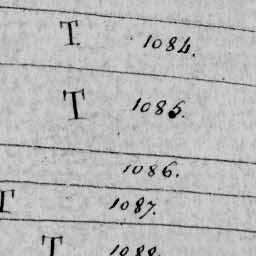 T. 1084.
T 1085.
1086.
T 1087.
T 1088.